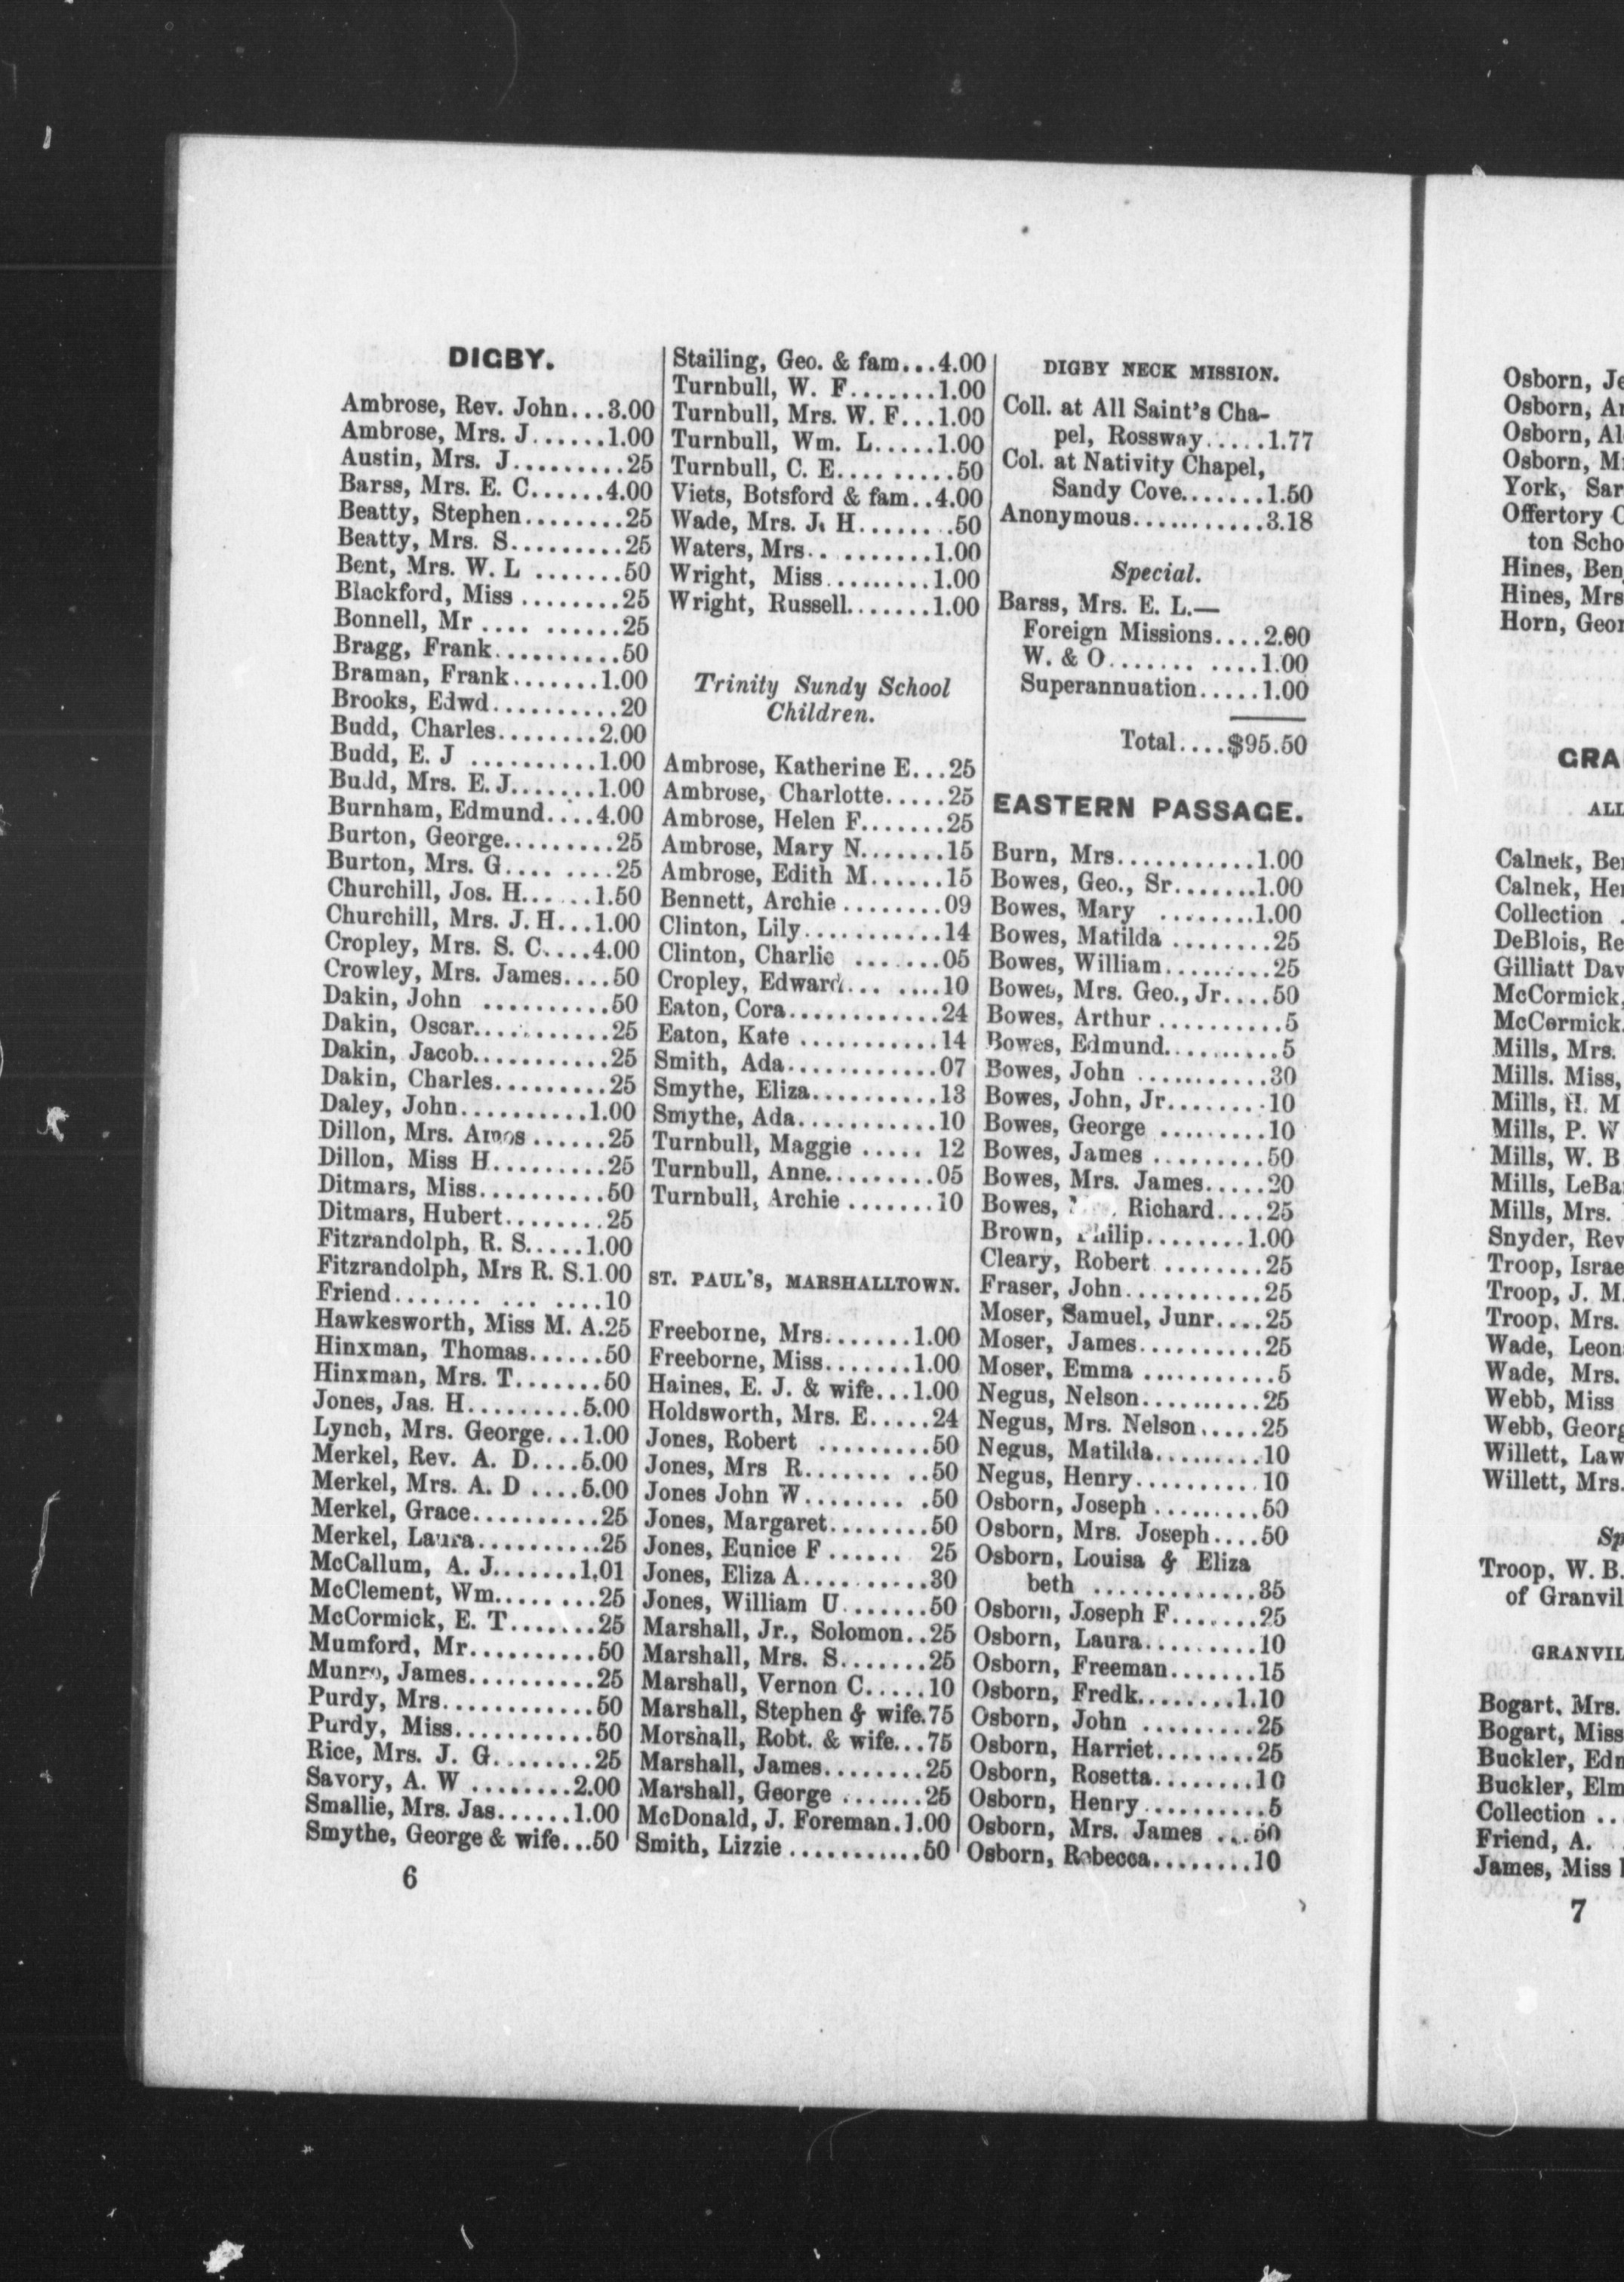 DIGBY.
Ambrose, Rev. John...3.00
Ambrose, Mrs. J......1.00
Austin, Mrs. J.........25
Barss, Mrs. E. C......4.00
Beatty, Stephen........25
Beatty, Mrs. S.........25
Bent, Mrs. W. L .......50
Blackford, Miss ........25
Bonnell, Mr .... ......25
Bragg, Frank..........50
Braman, Frank.......1.00
Brooks, Edwd..........20
Budd, Charles........2.00
Budd, E. J ..........1.00
Budd, Mrs. E. J.......1.00
Burnham, Edmund....4.00
Burton, George.........25
Burton, Mrs. G.... .....25
Churchill, Jos. H... ...1.50
Churchill, Mrs. J. H...1.00
Cropley, Mrs. S. C....4.00
Crowley, Mrs. James....50
Dakin, John ..........50
Dakin, Oscar...........25
Dakin, Jacob...........25
Dakin, Charles.........25
Daley, John..........1.00
Dillon, Mrs. Amos ......25
Dillon, Miss H.........25
Ditmars, Miss..........50
Ditmars, Hubert........25
Fitzrandolph, R. S.....1.00
Fitzrandolph, Mrs R. S.1.00
Friend....... ... ....10
Hawkesworth, Miss M. A.25
Hinxman, Thomas......50
Hinxman, Mrs. T.......50
Jones, Jas. H.........5.00
Lynch, Mrs. George...1.00
Merkel, Rev. A. D....5.00
Merkel, Mrs. A. D ....5.00
Merkel, Grace..........25
Merkel, Laura..........25
McCallum, A. J.......1.01
McClement, Wm.........25
McCormick, E. T.......25
Mumford, Mr..........50
Munro, James..........25
Purdy, Mrs............50
Purdy, Miss...........50
Rice, Mrs. J. G........25
Savory, A. W ........2.00
Smallie, Mrs. Jas......1.00
Smythe, George & wife...50
6
Stailing, Geo. & fam...4.00
Turnbull, W. F.......1.00
Turnbull, Mrs. W. F...1.00
Turnbull, Wm. L.....1.00
Turnbull, C. E.... .....50
Viets, Botsford & fam..4.00
Wade, Mrs. J. H........50
Waters, Mrs.. ........1.00
Wright, Miss.........1.00
Wright, Russell.......1.00
Trinity Sundy School
Children.
Ambrose, Katherine E...25
Ambrose, Charlotte.....25
Ambrose, Helen F.......25
Ambrose, Mary N.......15
Ambrose, Edith M......15
Bennett, Archie ........09
Clinton, Lily...........14
Clinton, Charlie .......05
Cropley, Edward... ....10
Eaton, Cora............24
Eaton, Kate ...........14
Smith, Ada............07
Smythe, Eliza..........13
Smythe, Ada...........10
Turnbull, Maggie ..... 12
Turnbull, Anne.........05
Turnbull, Archie .......10
ST. PAUL'S, MARSHALLTOWN.
Freeborne, Mrs.......1.00
Freeborne, Miss.......1.00
Haines, E. J. & wife...1.00
Holdsworth, Mrs. E.....24
Jones, Robert .........50
Jones, Mrs R....... ..50
Jones John W........ .50
Jones, Margaret........50
Jones, Eunice F ...... 25
Jones, Eliza A..........30
Jones, William U.......50
Marshall, Jr., Solomon..25
Marshall, Mrs. S.......25
Marshall, Vernon C.....10
Marshall, Stephen & wife.75
Morshall, Robt. & wife...75
Marshall, James........25
Marshall, George .......25
McDonald, J. Foreman.1.00
Smith, Lizzie ...........50
DIGBY NECK MISSION.
Coll. at All Saint's Cha-
pel, Rossway.....1.77
Col. at Nativity Chapel,
Sandy Cove.......1.50
Anonymous...........3.18
Special.
Barss, Mrs. E. L.—
Foreign Missions....2.00
W. & O....... ....1.00
Superannuation.....1.00
Total....$95.50
EASTERN PASSAGE.
Burn, Mrs...........1.00
Bowes, Geo., Sr.......1.00
Bowes, Mary ........1.00
Bowes, Matilda ........25
Bowes, William.........25
Bowes, Mrs. Geo., Jr....50
Bowes, Arthur ..........5
Bowes, Edmund..........5
Bowes, John ...........30
Bowes, John, Jr........10
Bowes, George .........10
Bowes, James .........50
Bowes, Mrs. James.....20
Bowes, Richard....25
Brown, Philip........1.00
Cleary, Robert ........25
Fraser, John...........25
Moser, Samuel, Junr....25
Moser, James..........25
Moser, Emma ...........5
Negus, Nelson..........25
Negus, Mrs. Nelson.....25
Negus, Matilda.........10
Negus, Henry..........10
Osborn, Joseph .........50
Osborn, Mrs. Joseph....50
Osborn, Louisa & Eliza
beth ..............35
Osborn, Joseph F.......25
Osborn, Laura.........10
Osborn, Freeman.......15
Osborn, Fredk........1.10
Osborn, John .........25
Osborn, Harriet........25
Osborn, Rosetta........10
Osborn, Henry..........5
Osborn, Mrs. James ...50
Osborn, Rebecca........10
Osborn, Je
Osborn, Ar
Osborn, Al
Osborn, M
York, Sar
Offertory C
ton Scho
Hines, Ben
Hines, Mrs
Horn, Geor
GRA
ALL
Calnek, Ber
Calnek, Her
Collection .
DeBlois, Re
Gilliatt Dav
McCormick,
McCormick.
Mills, Mrs.
Mills. Miss,
Mills, H. M
Mills, P. W
Mills, W. B
Mills, LeBa
Mills, Mrs.
Snyder, Rev
Troop, Israe
Troop, J. M.
Troop, Mrs.
Wade, Leon
Wade, Mrs.
Webb, Miss
Webb, Georg
Willett, Law
Willett, Mrs.
Sp
Troop, W. B.
of Granvil
GRANVIL
Bogart, Mrs.
Bogart, Miss
Buckler, Edn
Buckler, Elm
Collection ..
Friend, A.
James, Miss
7